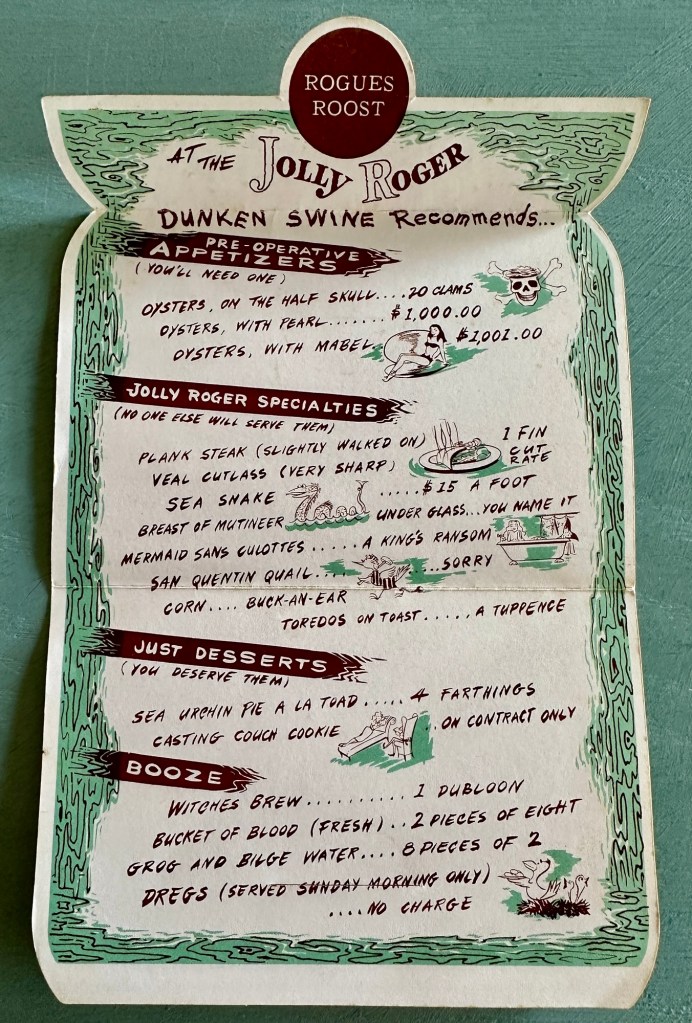 ROGUES
ROOST
AT THE JOLLY ROGER
DUNKEN SWINE Recommends...
PRE-OPERATIVE
APPETIZERS
(YOU'LL NEED ONE)
OYSTERS, ON THE HALF SKULL....20 CLAMS
OYSTERS, WITH PEARL.......$1,000.00
OYSTERS, WITH MABEL $1,001.00
JOLLY ROGER SPECIALTIES
(NO ONE ELSE WILL SERVE THEM)
PLANK STEAK (SLIGHTLY WALKED ON) 1 FIN
VEAL CUTLASS (VERY SHARP) CUT RATE
SEA SNAKE .....$15 A FOOT
BREAST OF MUTINEER UNDER GLASS...YOU NAME IT
MERMAID SANS CULOTTES.....A KING'S RANSOM
SAN QUENTIN QUAIL.... .....SORRY
CORN.... BUCK-AN-EAR
TOREDOS ON TOAST.....A TUPPENCE
JUST DESSERTS
(YOU DESERVE THEM)
SEA URCHIN PIE A LA TOAD.....4 FARTHINGS
CASTING COUCH COOKIE ..ON CONTRACT ONLY
BOOZE
WITCHES BREW..........1 DUBLOON
BUCKET OF BLOOD (FRESH)..2 PIECES OF EIGHT
GROG AND BILGE WATER....8 PIECES OF 2
DREGS (SERVED SUNDAY MORNING ONLY)
....NO CHARGE